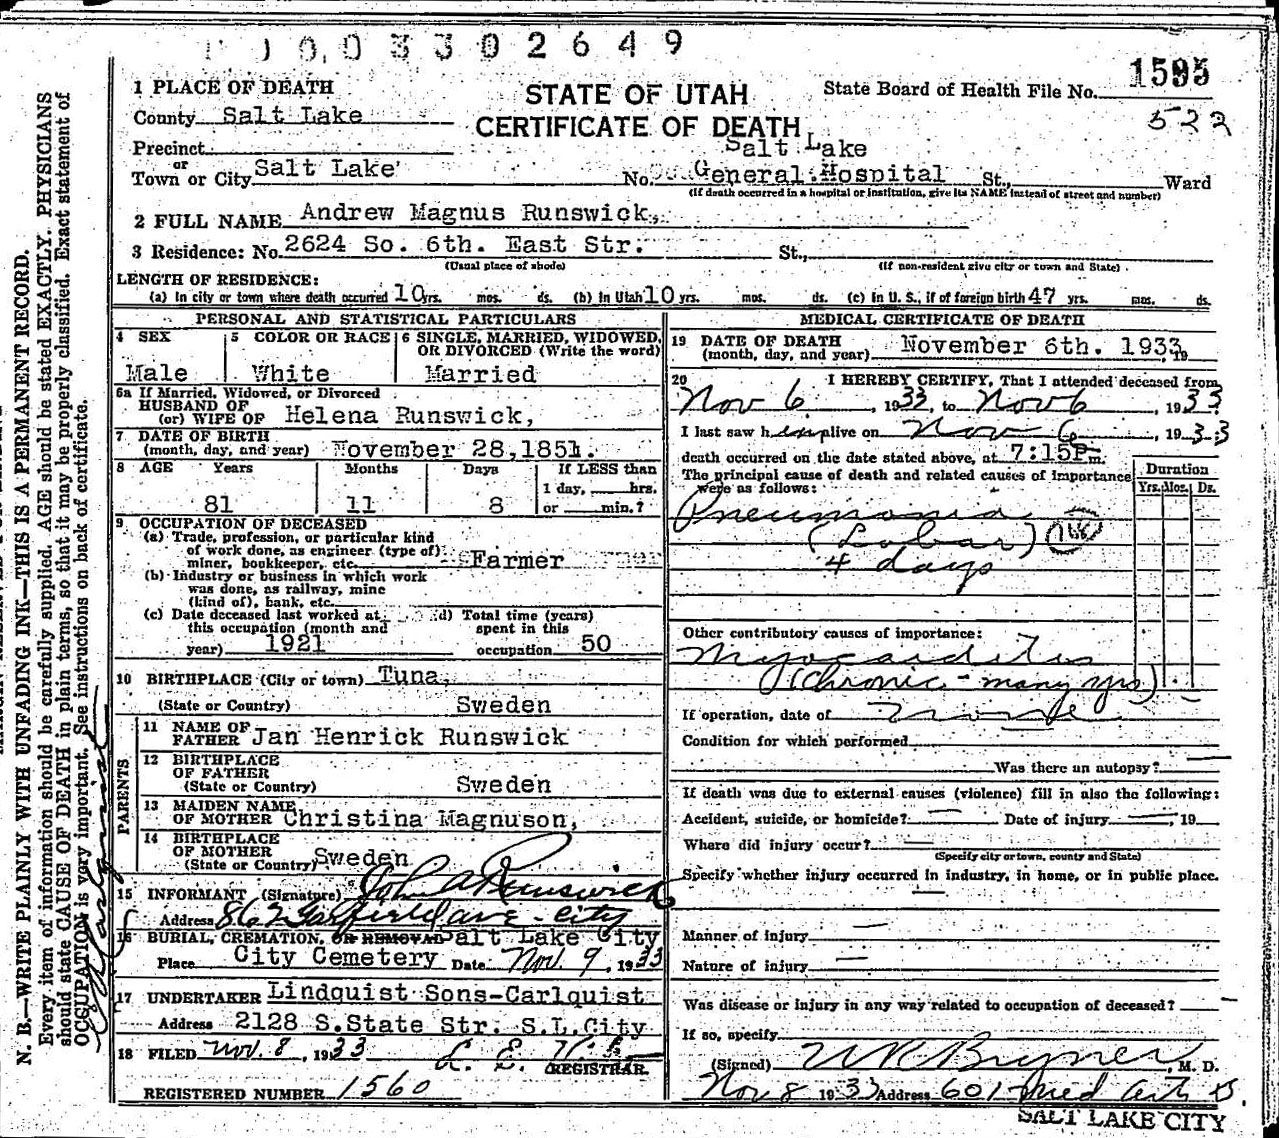 0 0 3 3 0 2 6 4 9
1595
522
STATE OF UTAH
CERTIFICATE OF DEATH
State Board of Health File No.
1 PLACE OF DEATH
County Salt Lake
Precinct
or
Town or City Salt Lake
Salt Lake
No. General Hospital St., Ward
(If death occurred in a hospital or institution, give its NAME instead of street and number)
2 FULL NAME Andrew Magnus Runswick,
3 Residence: No. 2624 So. 6th. East Str. St.,
(Usual place of abode) (If non-resident give city or town and State)
LENGTH OF RESIDENCE:
(a) In city or town where death occurred 10 yrs. mos. ds. (b) In Utah 10 yrs. mos. ds. (c) In U. S., if of foreign birth 47 yrs. mos. ds.
PERSONAL AND STATISTICAL PARTICULARS
4 SEX
Male
5 COLOR OR RACE
White
6 SINGLE, MARRIED, WIDOWED, OR DIVORCED (Write the word)
Married
6a If Married, Widowed, or Divorced
HUSBAND OF
(or) WIFE OF Helena Runswick,
7 DATE OF BIRTH
(month, day, and year) November 28, 1851.
8 AGE Years Months Days If LESS than
1 day, hrs.
81 11 8 or min.?
9 OCCUPATION OF DECEASED
(a) Trade, profession, or particular kind
of work done, as engineer (type of)
miner, bookkeeper, etc. Farmer
(b) Industry or business in which work
was done, as railway, mine
(kind of), bank, etc.
(c) Date deceased last worked at
this occupation (month and
year) 1921
d) Total time (years)
spent in this
occupation 50
10 BIRTHPLACE (City or town) Tuna,
(State or Country) Sweden
PARENTS
11 NAME OF
FATHER Jan Henrick Runswick
12 BIRTHPLACE
OF FATHER
(State or Country) Sweden
13 MAIDEN NAME
OF MOTHER Christina Magnuson,
14 BIRTHPLACE
OF MOTHER
(State or Country) Sweden
15 INFORMANT (Signature) John A Runswick
Address 862 Garfield ave - City
16 BURIAL, CREMATION, OR REMOVAL Salt Lake City
Place City Cemetery Date Nov. 9, 1933
17 UNDERTAKER Lindquist Sons-Carlquist
Address 2128 S.State Str. S.L.City
18 FILED Nov. 8, 1933
REGISTRAR.
REGISTERED NUMBER 1560
MEDICAL CERTIFICATE OF DEATH
19 DATE OF DEATH
(month, day, and year) November 6th. 1933 19
20 I HEREBY CERTIFY, That I attended deceased from
Nov 6, 1933, to Nov 6, 1933
I last saw him alive on Nov 6, 1933
death occurred on the date stated above, at 7:15P m.
The principal cause of death and related causes of importance
were as follows:
Duration
Yrs. Mos. Ds.
Pneumonia
(Lobar)
4 days
Other contributory causes of importance:
Myocarditis
(Chronic - many yrs)
If operation, date of None
Condition for which performed
Was there an autopsy?
If death was due to external causes (violence) fill in also the following:
Accident, suicide, or homicide? Date of injury , 19
Where did injury occur?
(Specify city or town, county and State)
Specify whether injury occurred in industry, in home, or in public place.
Manner of injury
Nature of injury
Was disease or injury in any way related to occupation of deceased?
If so, specify
(Signed) W R Bryner, M. D.
Nov 8 1933 Address 601 Med Arts B.
SALT LAKE CITY
N. B.—WRITE PLAINLY WITH UNFADING INK—THIS IS A PERMANENT RECORD.
Every item of information should be carefully supplied. AGE should be stated EXACTLY. PHYSICIANS
should state CAUSE OF DEATH in plain terms, so that it may be properly classified. Exact statement of
OCCUPATION is very important. See instructions on back of certificate.